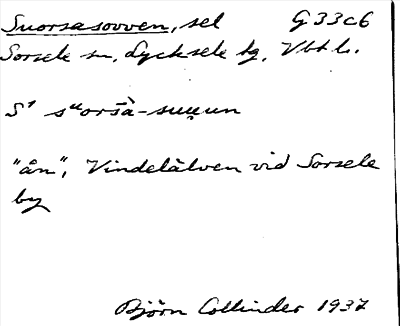 Suorsasovven, sel G 33c6
Sorsele sn, Lycksele tg, Vbtl.
"ån", Vindelälven vid Sorsele
by
Björn Collinder 1937